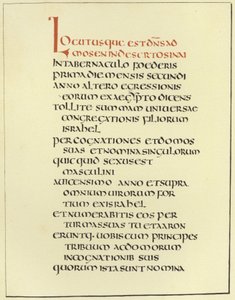 LOCUTUSQUE EST DNS AD
MOSEN IN DESERTO SINAI
IN TABERNACULO FOEDERIS
PRIMA DIE MENSIS SECUNDI
ANNO ALTERO EGRESSIONIS
EORUM EX AEGYPTO DICENS
TOLLITE SUMMAM UNIVERSAE
CONGREGATIONIS FILIORUM
ISRAHEL
PER COGNATIONES ET DOMOS
SUAS ET NOMINA SINGULORUM
QUICQUID SEXUS EST
MASCULINI
A VICENSIMO ANNO ET SUPRA
OMNIUM UIRORUM FOR
TIUM EX ISRAHEL
ET NUMERABITIS EOS PER
TURMAS SUAS TU ET AARON
ERUNTQ· UOBISCUM PRINCIPES
TRIBUUM AC DOMORUM
IN COGNATIONIB SUIS
QUORUM ISTA SUNT NOMINA